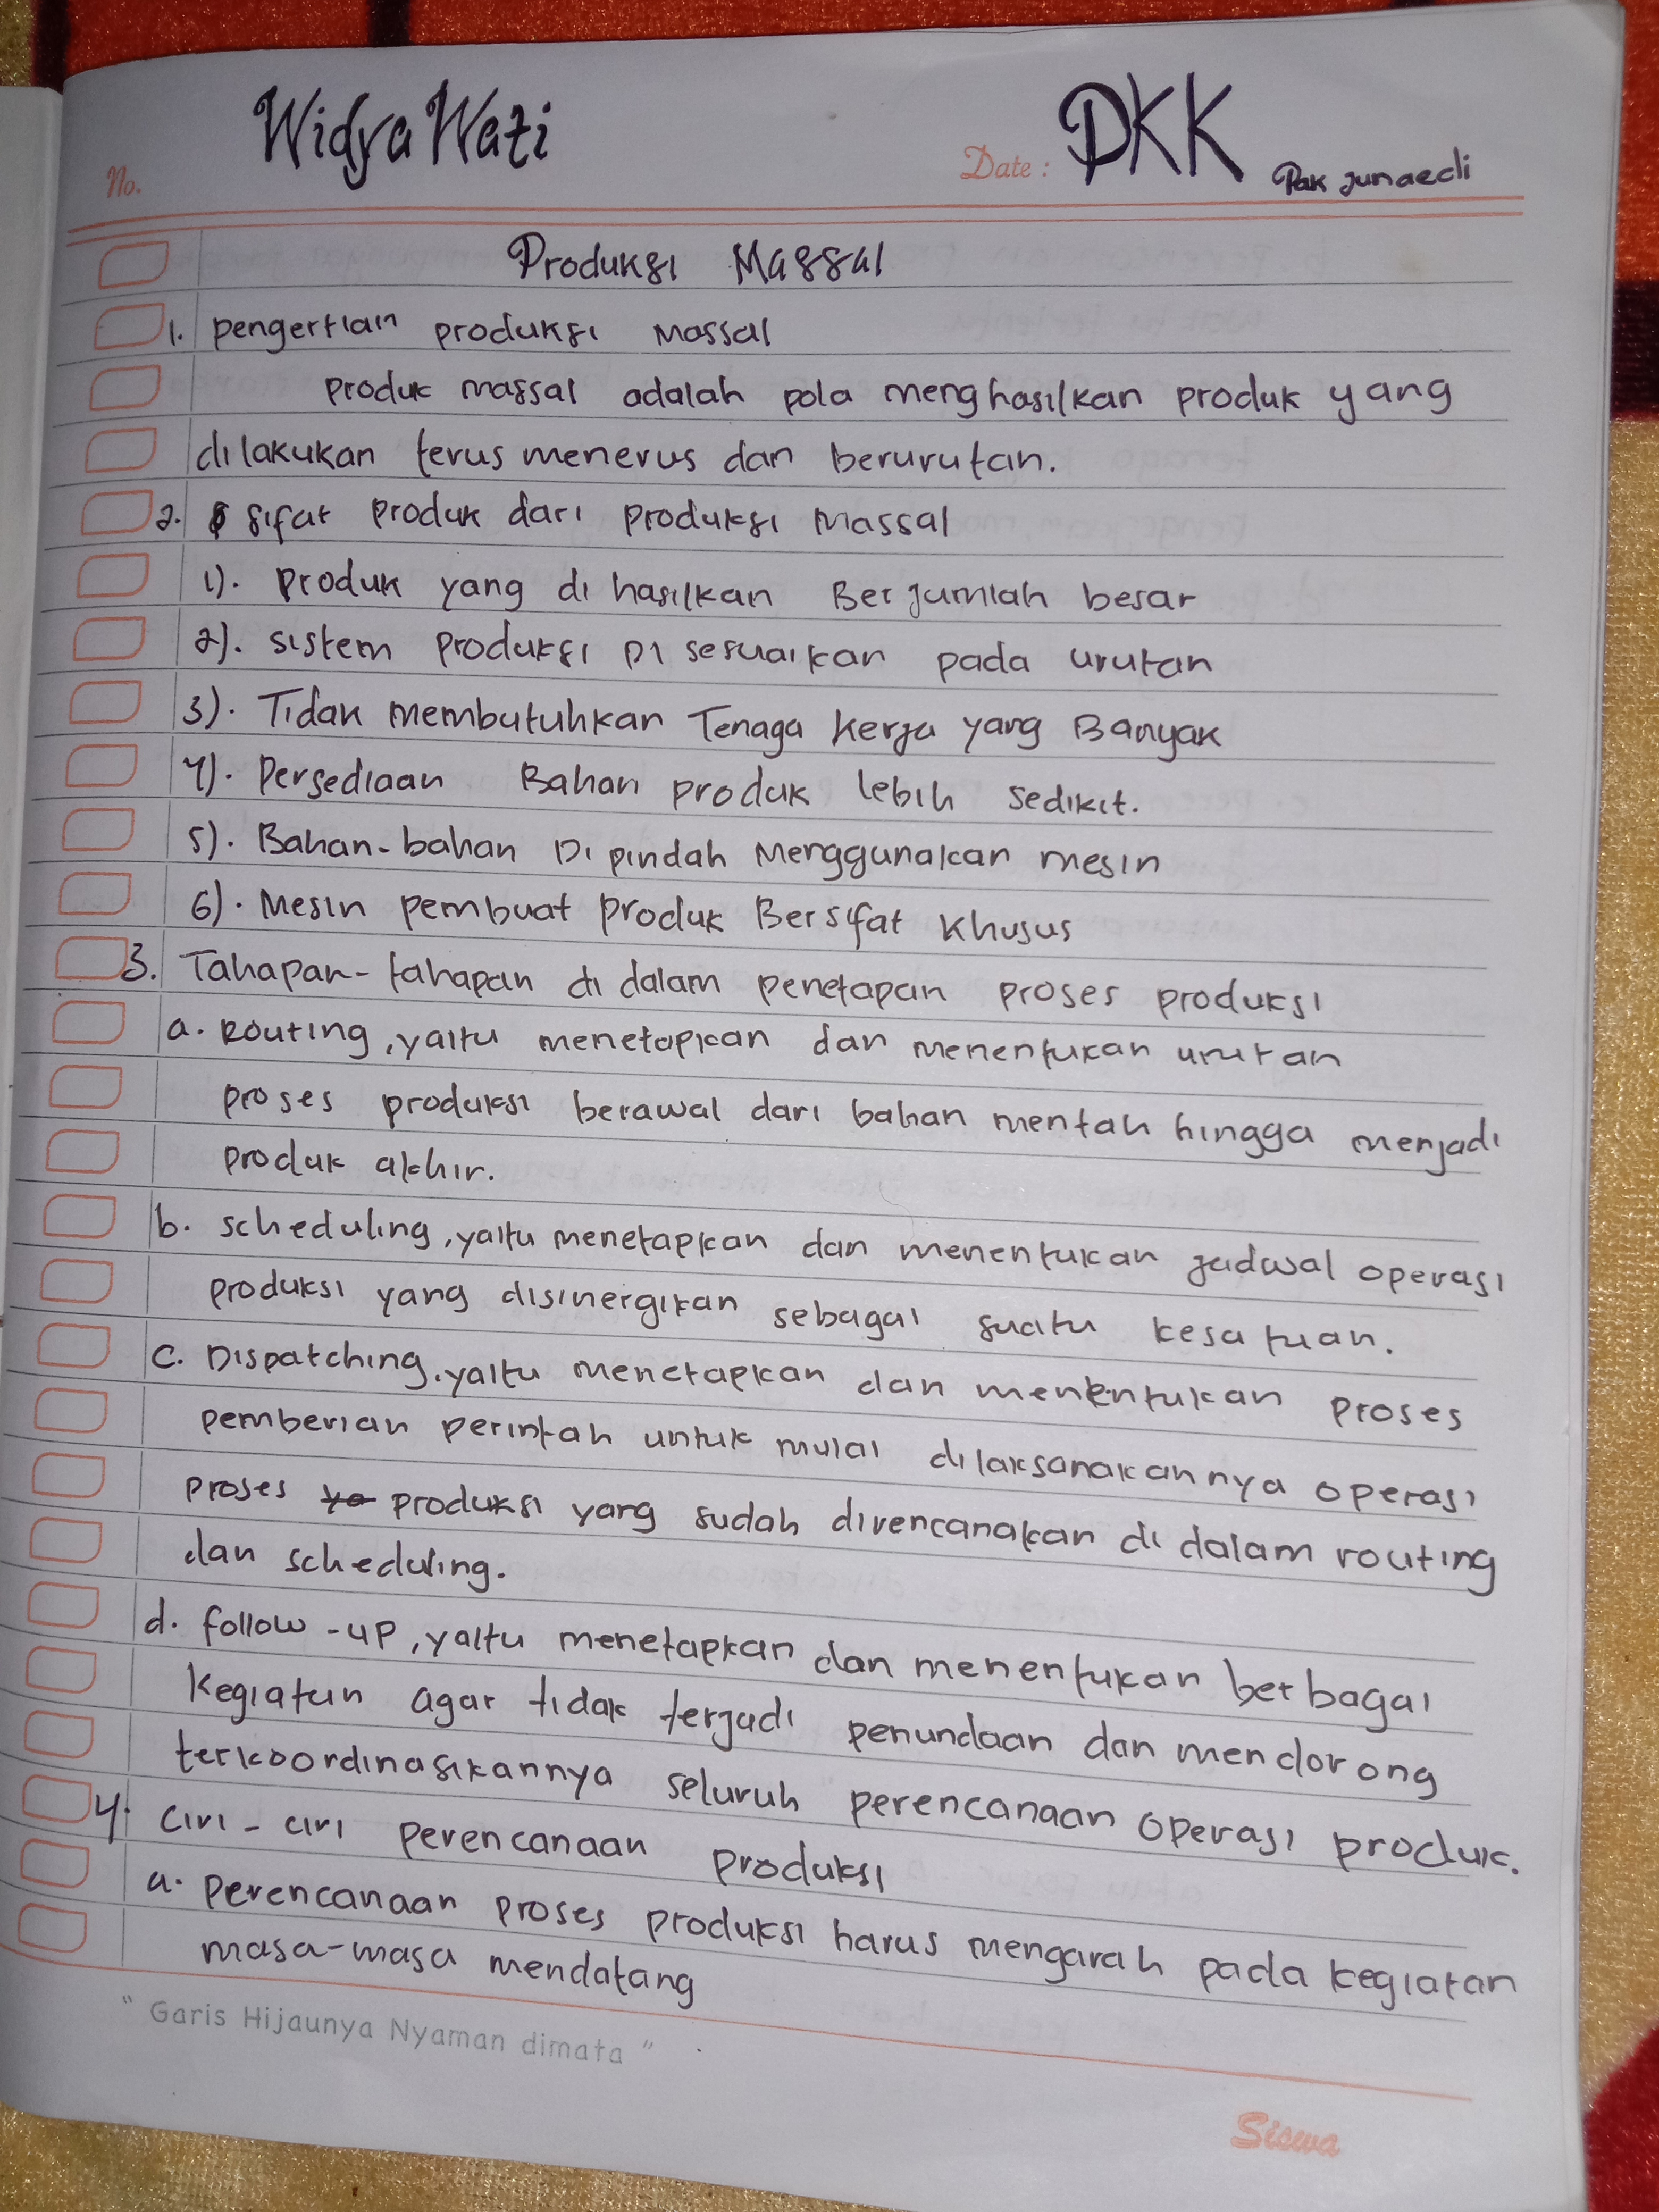 Widya Wati
DKK
No.
Date :
Pak Junaedi
Produksi Massal
1. pengertian produksi Massal
produk massal adalah pola menghasilkan produk yang
dilakukan terus menerus dan berurutan.
2. sifat produk dari produksi massal
1). Produk yang di hasilkan Berjumlah besar
2). sistem produksi Di sesuaikan pada urutan
3). Tidak membutuhkan Tenaga kerja yang Banyak
4). Persediaan Bahan produk lebih sedikit.
5). Bahan-bahan Di pindah Menggunakan mesin
6). Mesin pembuat produk Bersifat Khusus
3. Tahapan-tahapan di dalam penetapan proses produksi
a. Routing, yaitu menetapkan dan menentukan urutan
proses produksi berawal dari bahan mentah hingga menjadi
produk akhir.
b. scheduling, yaitu menetapkan dan menentukan jadwal operasi
produksi yang disinergikan sebagai suatu kesatuan.
c. Dispatching, yaitu menetapkan dan menentukan proses
pemberian perintah untuk mulai dilaksanakannya operasi
proses ya produksi yang sudah direncanakan di dalam routing
dan scheduling.
d. follow-up, yaitu menetapkan dan menentukan berbagai
kegiatan agar tidak terjadi penundaan dan mendorong
terkoordinasikannya seluruh perencanaan operasi produk.
4. Ciri-ciri perencanaan produksi
a. perencanaan proses produksi harus mengarah pada kegiatan
masa-masa mendatang
" Garis Hijaunya Nyaman dimata "
Siswa